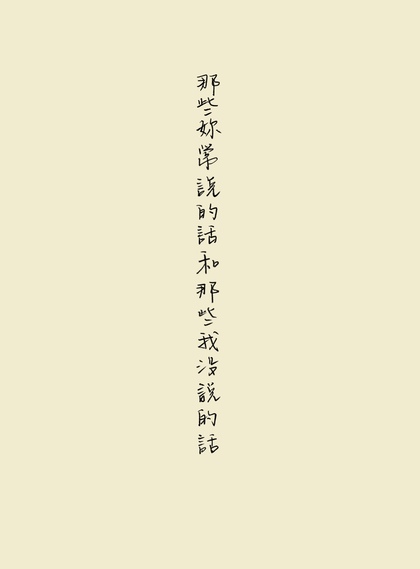 那些妳常說的話和那些我沒說的話